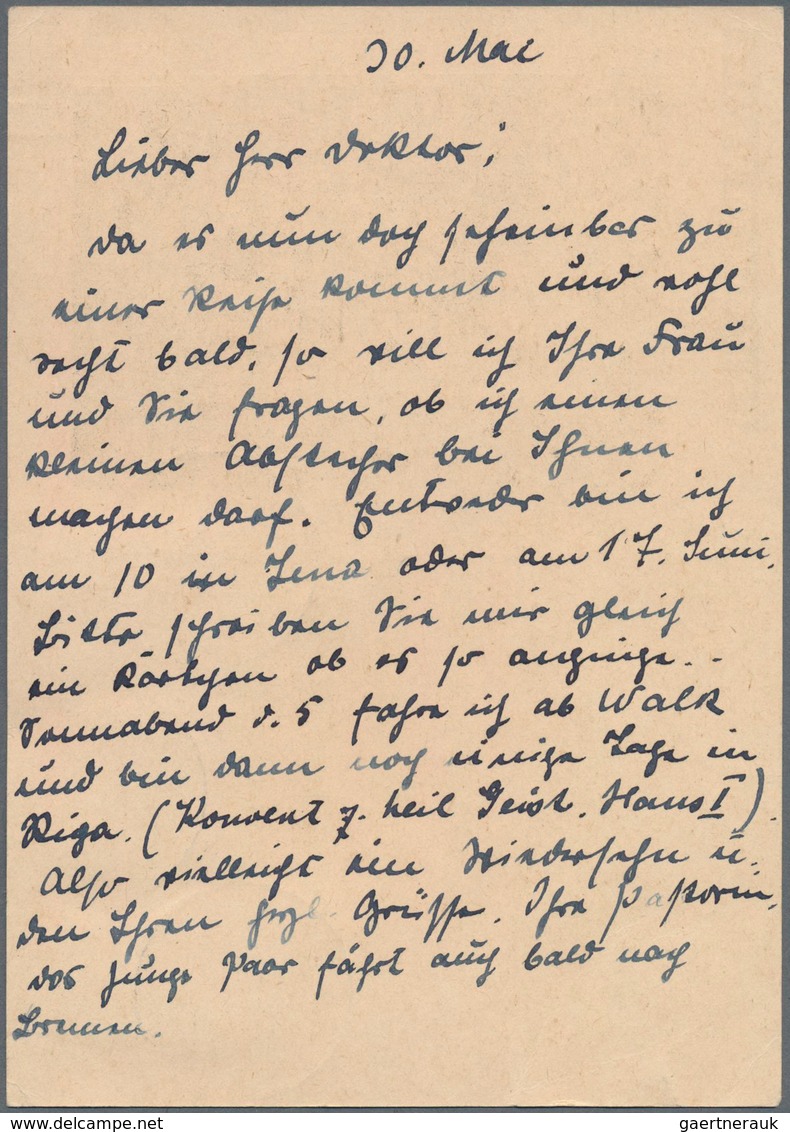 30. Mai
Lieber Herr Doktor,
da es nun doch scheinbar zu
einer Reise kommt und wohl
recht bald, so will ich Ihre Frau
und Sie fragen, ob ich einen
kleinen Abstecher bei Ihnen
machen darf. Entweder bin ich
am 10 in Jena oder am 17. Juni.
Bitte schreiben Sie mir gleich
ein Kärtchen ob es so anginge..
Sonnabend d. 5 fahre ich ab Walk
und bin dann noch einige Tage in
Riga. (Konvent z. heil Geist. Haus I).
Also vielleicht ein Wiedersehn u.
den Ihren herzl. Grüsse. Ihre Pastorin,
das junge Paar fährt auch bald nach
gaertnerauk